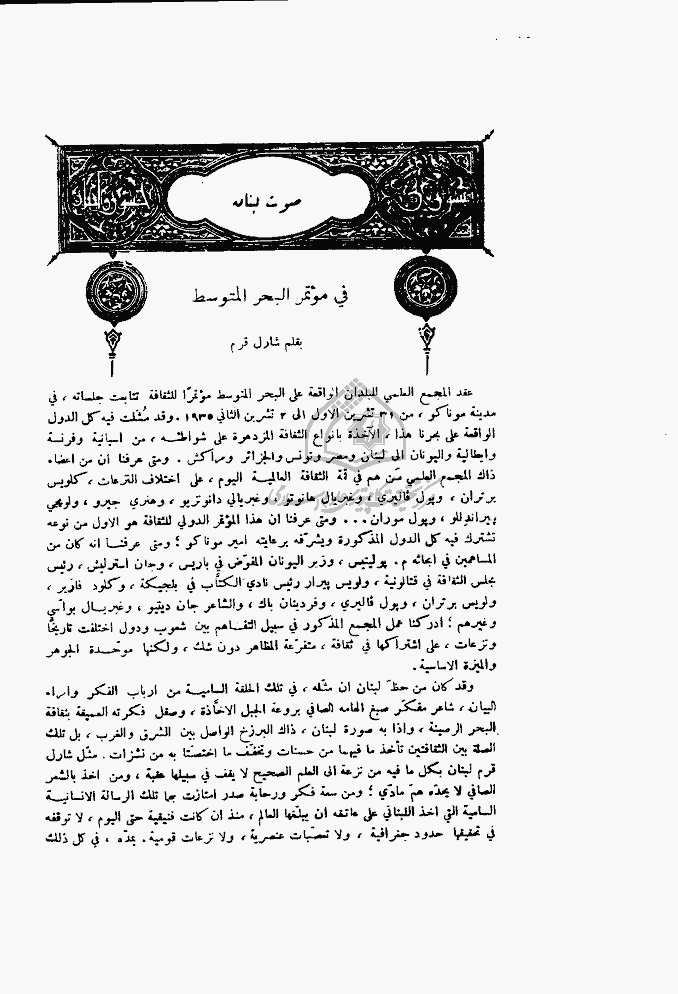 صوت لبنان
في مؤتمر البحر المتوسط
بقلم شارل قرم
عقد المجمع العلمي للبلدان الواقعة على البحر المتوسط مؤتمرًا للثقافة تتابعت جلساته ، في
مدينة موناكو ، من ٣١ تشرين الاول الى ٢ تشرين الثاني ١٩٣٥ . وقد مُثلت فيه كل الدول
الواقعة على بحرنا هذا ، الآخذة بانواع الثقافة المزدهرة على شواطئه ، من اسبانية وفرنسة
وايطالية واليونان الى لبنان ومصر وتونس والجزائر ومراكش . ومتى عرفنا ان من اعضاء
ذاك المجمع العلمي مَن هم في قمّة الثقافة العالمية اليوم ، على اختلاف النزعات ، كلويس
برتران ، وپول ڤاليري ، وغبريال هانوتو ، وغبريالي دانونزيو ، وهنري جيرو ، ولويجي
پيراندللو ، وپول موران . . . ومتى عرفنا ان هذا المؤتمر الدولي للثقافة هو الاول من نوعه
تشترك فيه كل الدول المذكورة ويشرّفه برعايته امير موناكو ؛ ومتى عرفنا انه كان من
المساهمين في ابحاثه م . پوليتيس ، وزير اليونان المفوّض في باريس ، وجان استرليش ، رئيس
مجلس الثقافة في قتالونية ، ولويس پيرار رئيس نادي الكتّاب في بلجيكة ، وكلود فارير ،
ولويس برتران ، وپول ڤاليري ، وفردينان باك ، والشاعر جان ديتيو ، وغبريال بواسّي
وغيرهم ؛ أدركنا عمل المجمع المذكور في سبيل التفاهم بين شعوب ودول اختلفت تاريخًا
ونزعات ، على اشتراكها في ثقافة ، متفرّعة المظاهر دون شك ، ولكنها موحّدة الجوهر
والميزة الاساسية .
وقد كان من حظ لبنان ان مثّله ، في تلك الحلقة السامية من ارباب الفكر وامراء
البيان ، شاعر مفكّر صبغ الهامه الصافي بروعة الجبل الاخّاذة ، وصقل فكرته العميقة بثقافة
البحر الرصينة ، واذا به صورة لبنان ، ذاك البرزخ الواصل بين الشرق والغرب ، بل تلك
الصلة بين الثقافتين تأخذ ما فيهما من حسنات وتخفّف ما اختصّتا به من نشزات . مثّل شارل
قرم لبنان بكل ما فيه من نزعة الى العلم الصحيح لا يقف في سبيلها عقبة ، ومن اخذ بالشعر
الصافي لا يحدّه همّ مادّي ؛ ومن سعة فكر ورحابة صدر امتازت بها تلك الرسالة الانسانية
السامية التي اخذ اللبناني على عاتقه ان يبلّغها العالم ، منذ ان كانت فنيقية حتى اليوم ، لا توقفه
في تحقيقها حدود جغرافية ، ولا تعصّبات عنصرية ، ولا نزعات قومية . يمدّه ، في كل ذلك